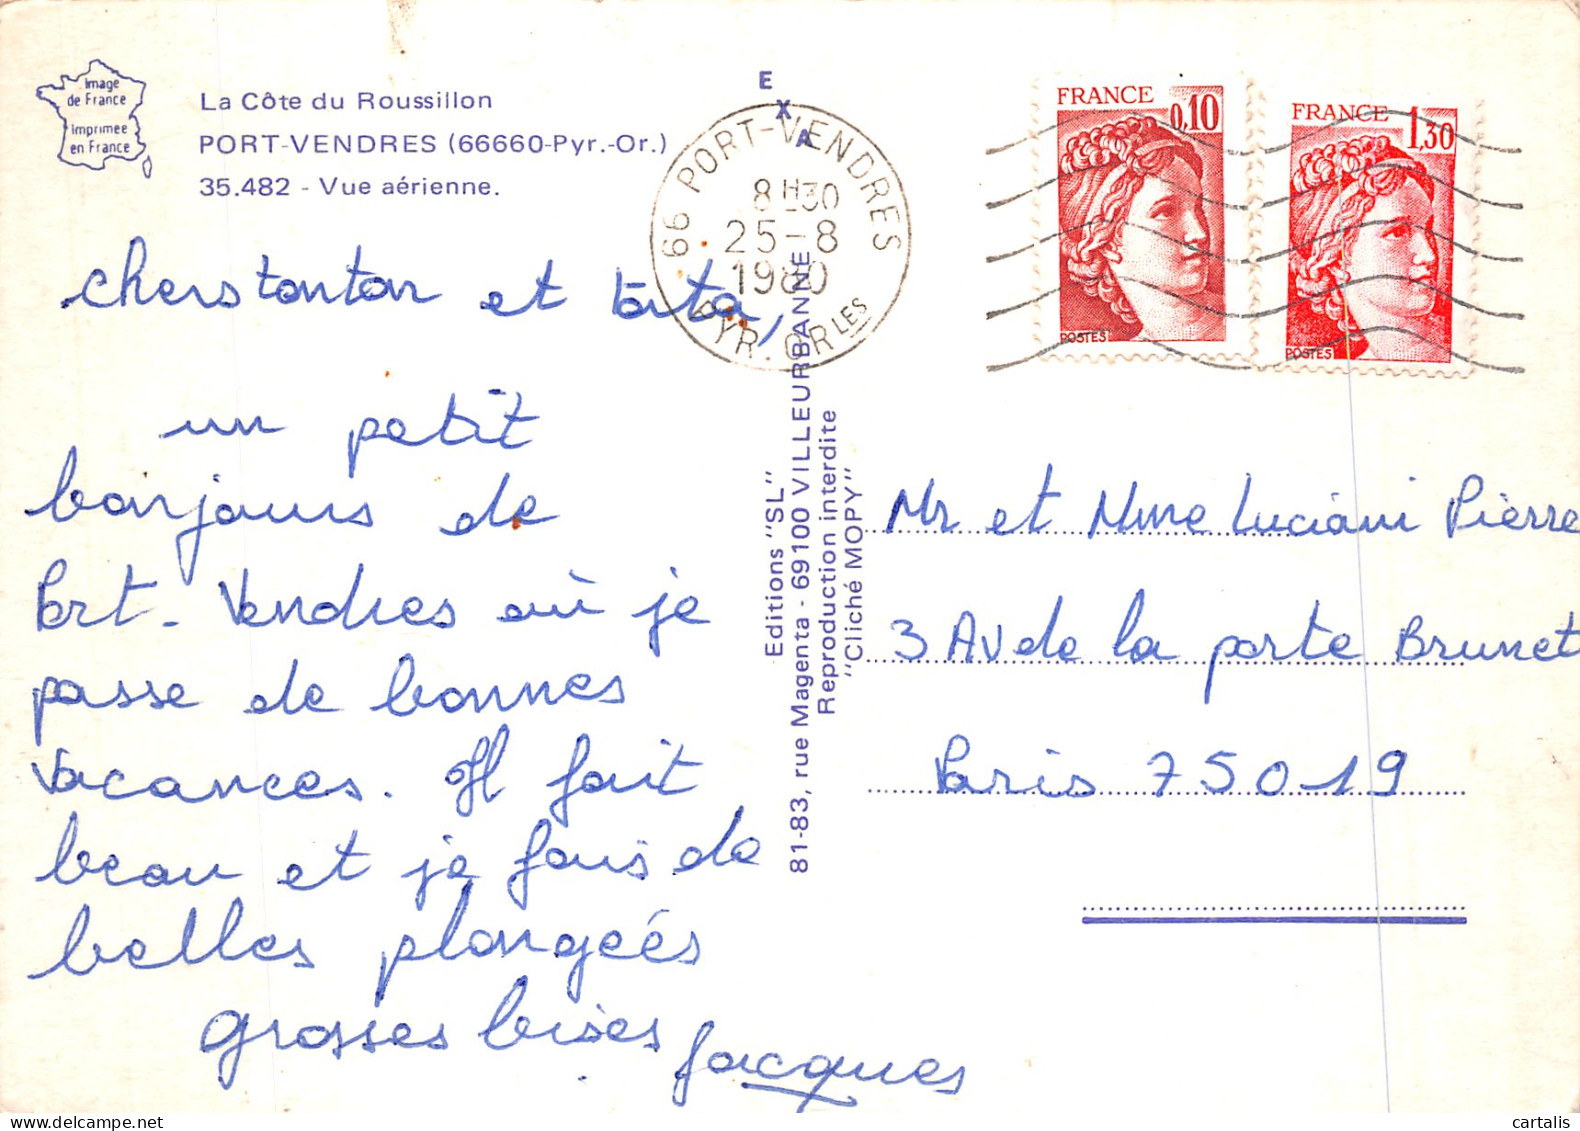 Image
de France
Imprimée
en France
La Côte du Roussillon
PORT-VENDRES (66660-Pyr.-Or.)
35.482 - Vue aérienne.
EXA
66 PORT-VENDRES
8H30
25-8
1980
PYR. ORLES
FRANCE
0,10
POSTES
FRANCE
1,30
POSTES
chers tonton et tata,
un petit
bonjours de
Port-Vendres où je
passe de bonnes
vacances. Il fait
beau et je fais de
belles plongeés
grosses bises
Jacques
Editions "SL"
81-83, rue Magenta - 69100 VILLEURBANNE
Reproduction interdite
"Cliché MOPY"
Mr et Mme Luciani Pièrre
3 Av de la porte Brunet
Paris 75019
cartalis